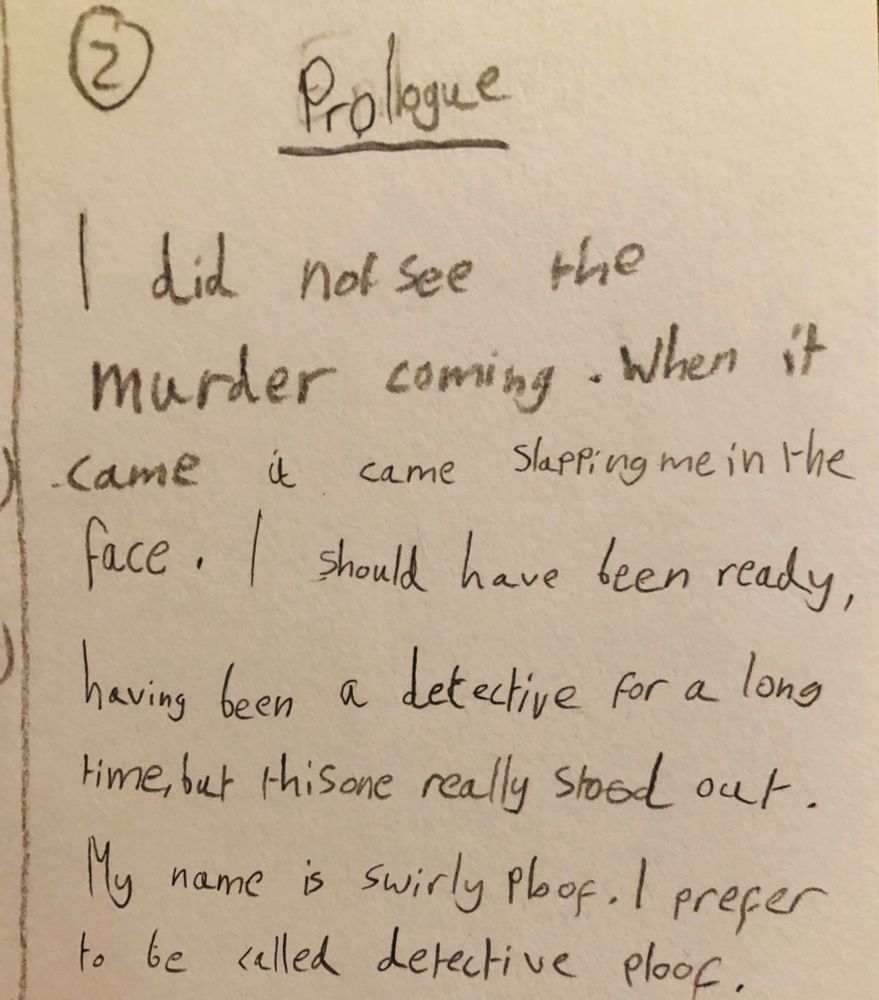 2
Prollogue
I did not see the
murder coming. When it
came it came slapping me in the
face. I should have been ready,
having been a detective for a long
time, but this one really stood out.
My name is swirly ploof. I prefer
to be called detective ploof.